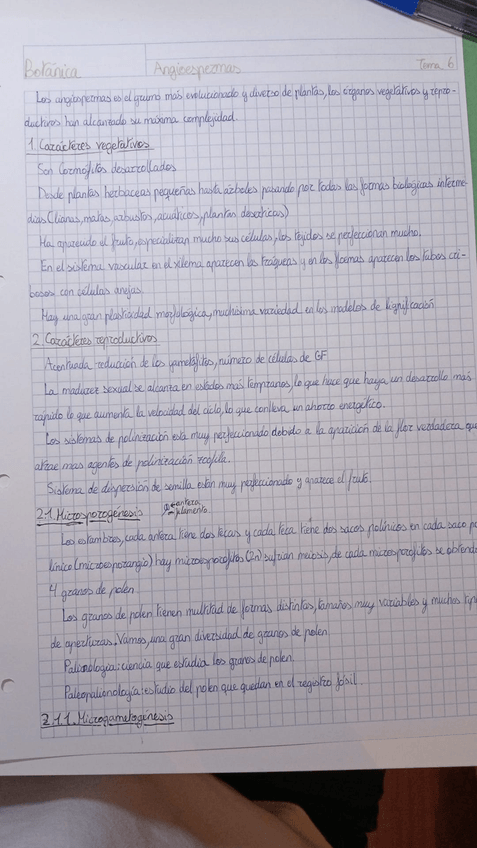 Botánica Angioespermas Tema 6
Las angiospermas es el grumo más evolucionado y diverso de plantas, los órganos vegetativos y repro-
ductores han alcanzado su máxima complejidad.
1. Carácteres vegetativos
Son Cormofitos desarrollados
Desde plantas herbaceas pequeñas hasta árboles pasando por todas las formas biologicas interme-
dias (lianas, matas, arbustos, acuáticos, plantas deserticas)
Ha aparecido el fruto, especializan mucho sus células, los tejidos se perfeccionan mucho.
En el sistema vascular en el xilema aparecen las tráqueas y en los floemas aparecen los tubos cri-
bosos con células anejas.
Hay una gran plasticidad morfologica, muchísima variedad en los modelos de lignificación
2. Carácteres reproductivos
Acentuada reducción de los gametófitos, número de células de GF
La madurez sexual se alcanza en estados más tempranos, lo que hace que haya un desarrollo más
rápido lo que aumenta la velocidad del ciclo, lo que conlleva un ahorro energético.
Los sistemas de polinización esta muy perfeccionado debido a la aparición de la flor verdadera que
atrae mas agentes de polinización zoofila.
Sistema de dispersión de semilla estan muy perfeccionado y aparece el fruto.
2.1. Microsporogenesis antera
filamento
Los estambres, cada antera tiene dos tecas y cada teca tiene dos sacos polínicos en cada saco po
línico (microesporangio) hay microesporocitos (2n) sufrian meiosis, de cada microesporocitos se obtend
4 granos de polen
Los granos de polen tienen multitud de formas distintas, tamaños muy variables y muchos tip
de aperturas. Vamos, una gran diversidad de granos de polen
Palinologia: ciencia que estudia los granos de polen.
Paleopalionologia: estudio del polen que quedan en el registro fósil.
2.1.1. Microgametogénesis